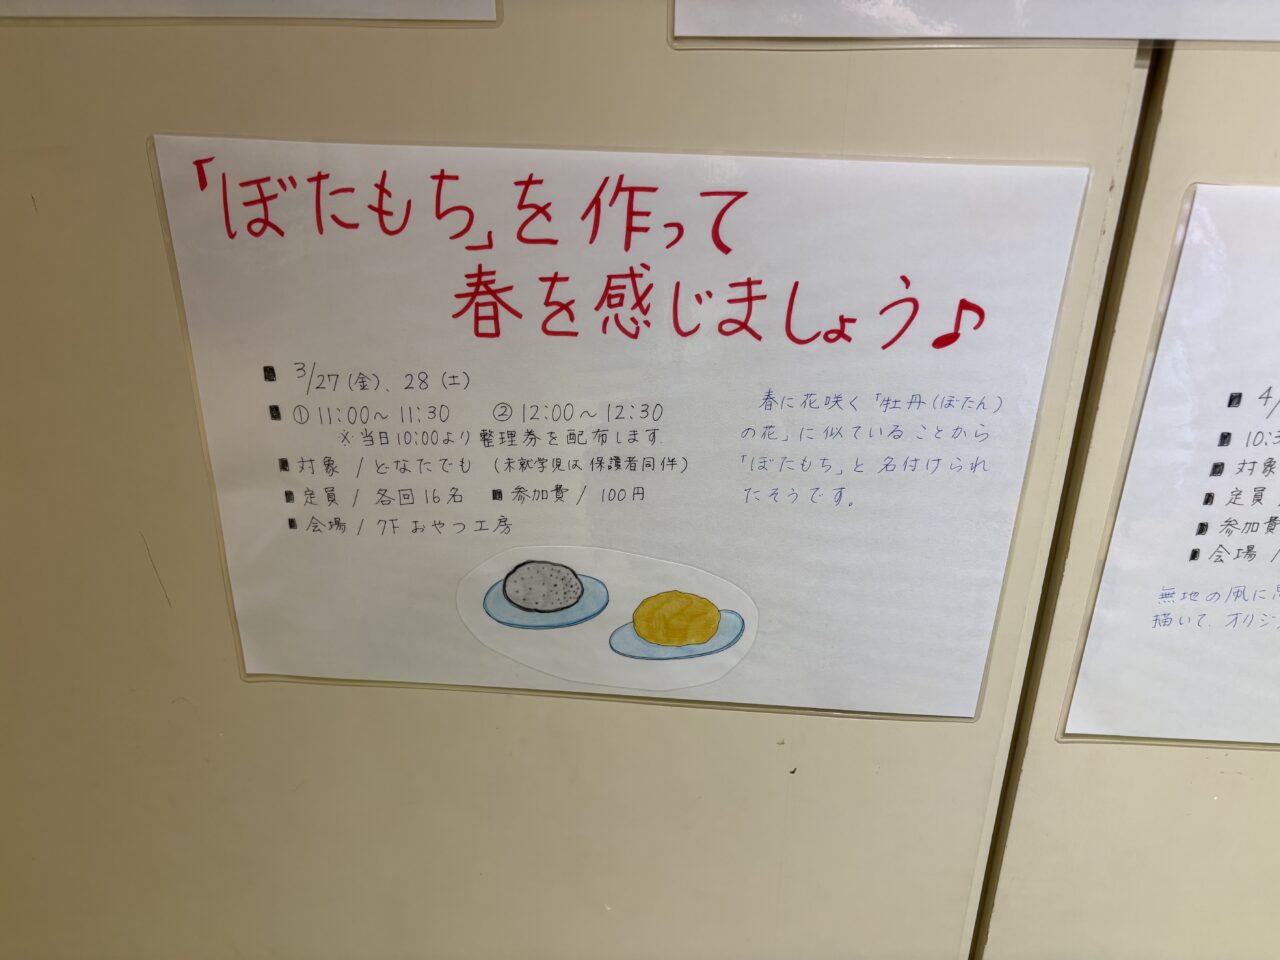 「ぼたもち」を作って
春を感じましょう♪
■ 3/27(金)、28(土)
■ ①11:00～11:30 ②12:00～12:30
※当日10:00より整理券を配布します
■ 対象/どなたでも(未就学児は保護者同伴)
■ 定員/各回16名 ■ 参加費/100円
■ 会場/7F おやつ工房
春に花咲く「牡丹(ぼたん)
の花」に似ていることから
「ぼたもち」と名付けられ
たそうです。
■ 4/
■ 10:3
■ 対象
■ 定員
■ 参加費
■ 会場/
無地の凧に
描いて、オリジ